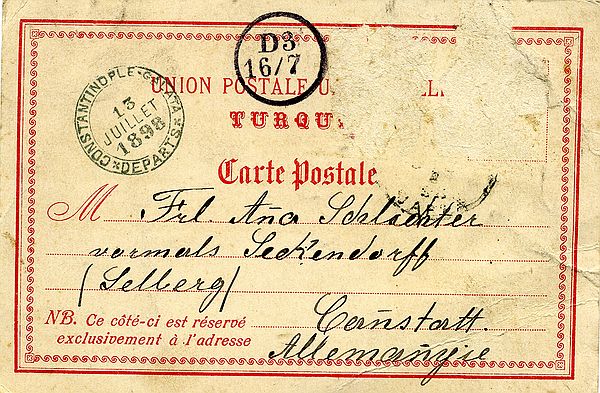 D3
16/7
CONSTANTINOPLE-GALATA
13
JUILLET
1898
*DEPARTS*
UNION POSTALE
TURQU
Carte Postale
M Frl. Ana Schlichter
vormals Seckendorff
(Selberg)
Canstatt.
Allemagne
NB. Ce côté-ci est réservé
exclusivement à l'adresse